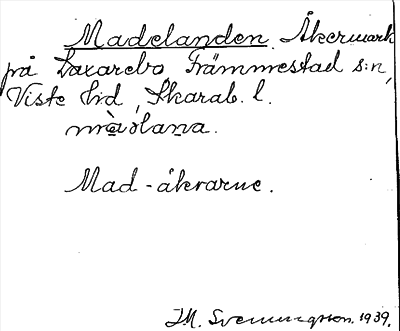 Madelanden. Åkermark
på Laxarebo, Främmestad s:n,
Viste hd, Skarab. l.
Mad-åkrarne.
J.M. Svenningsson. 1939.